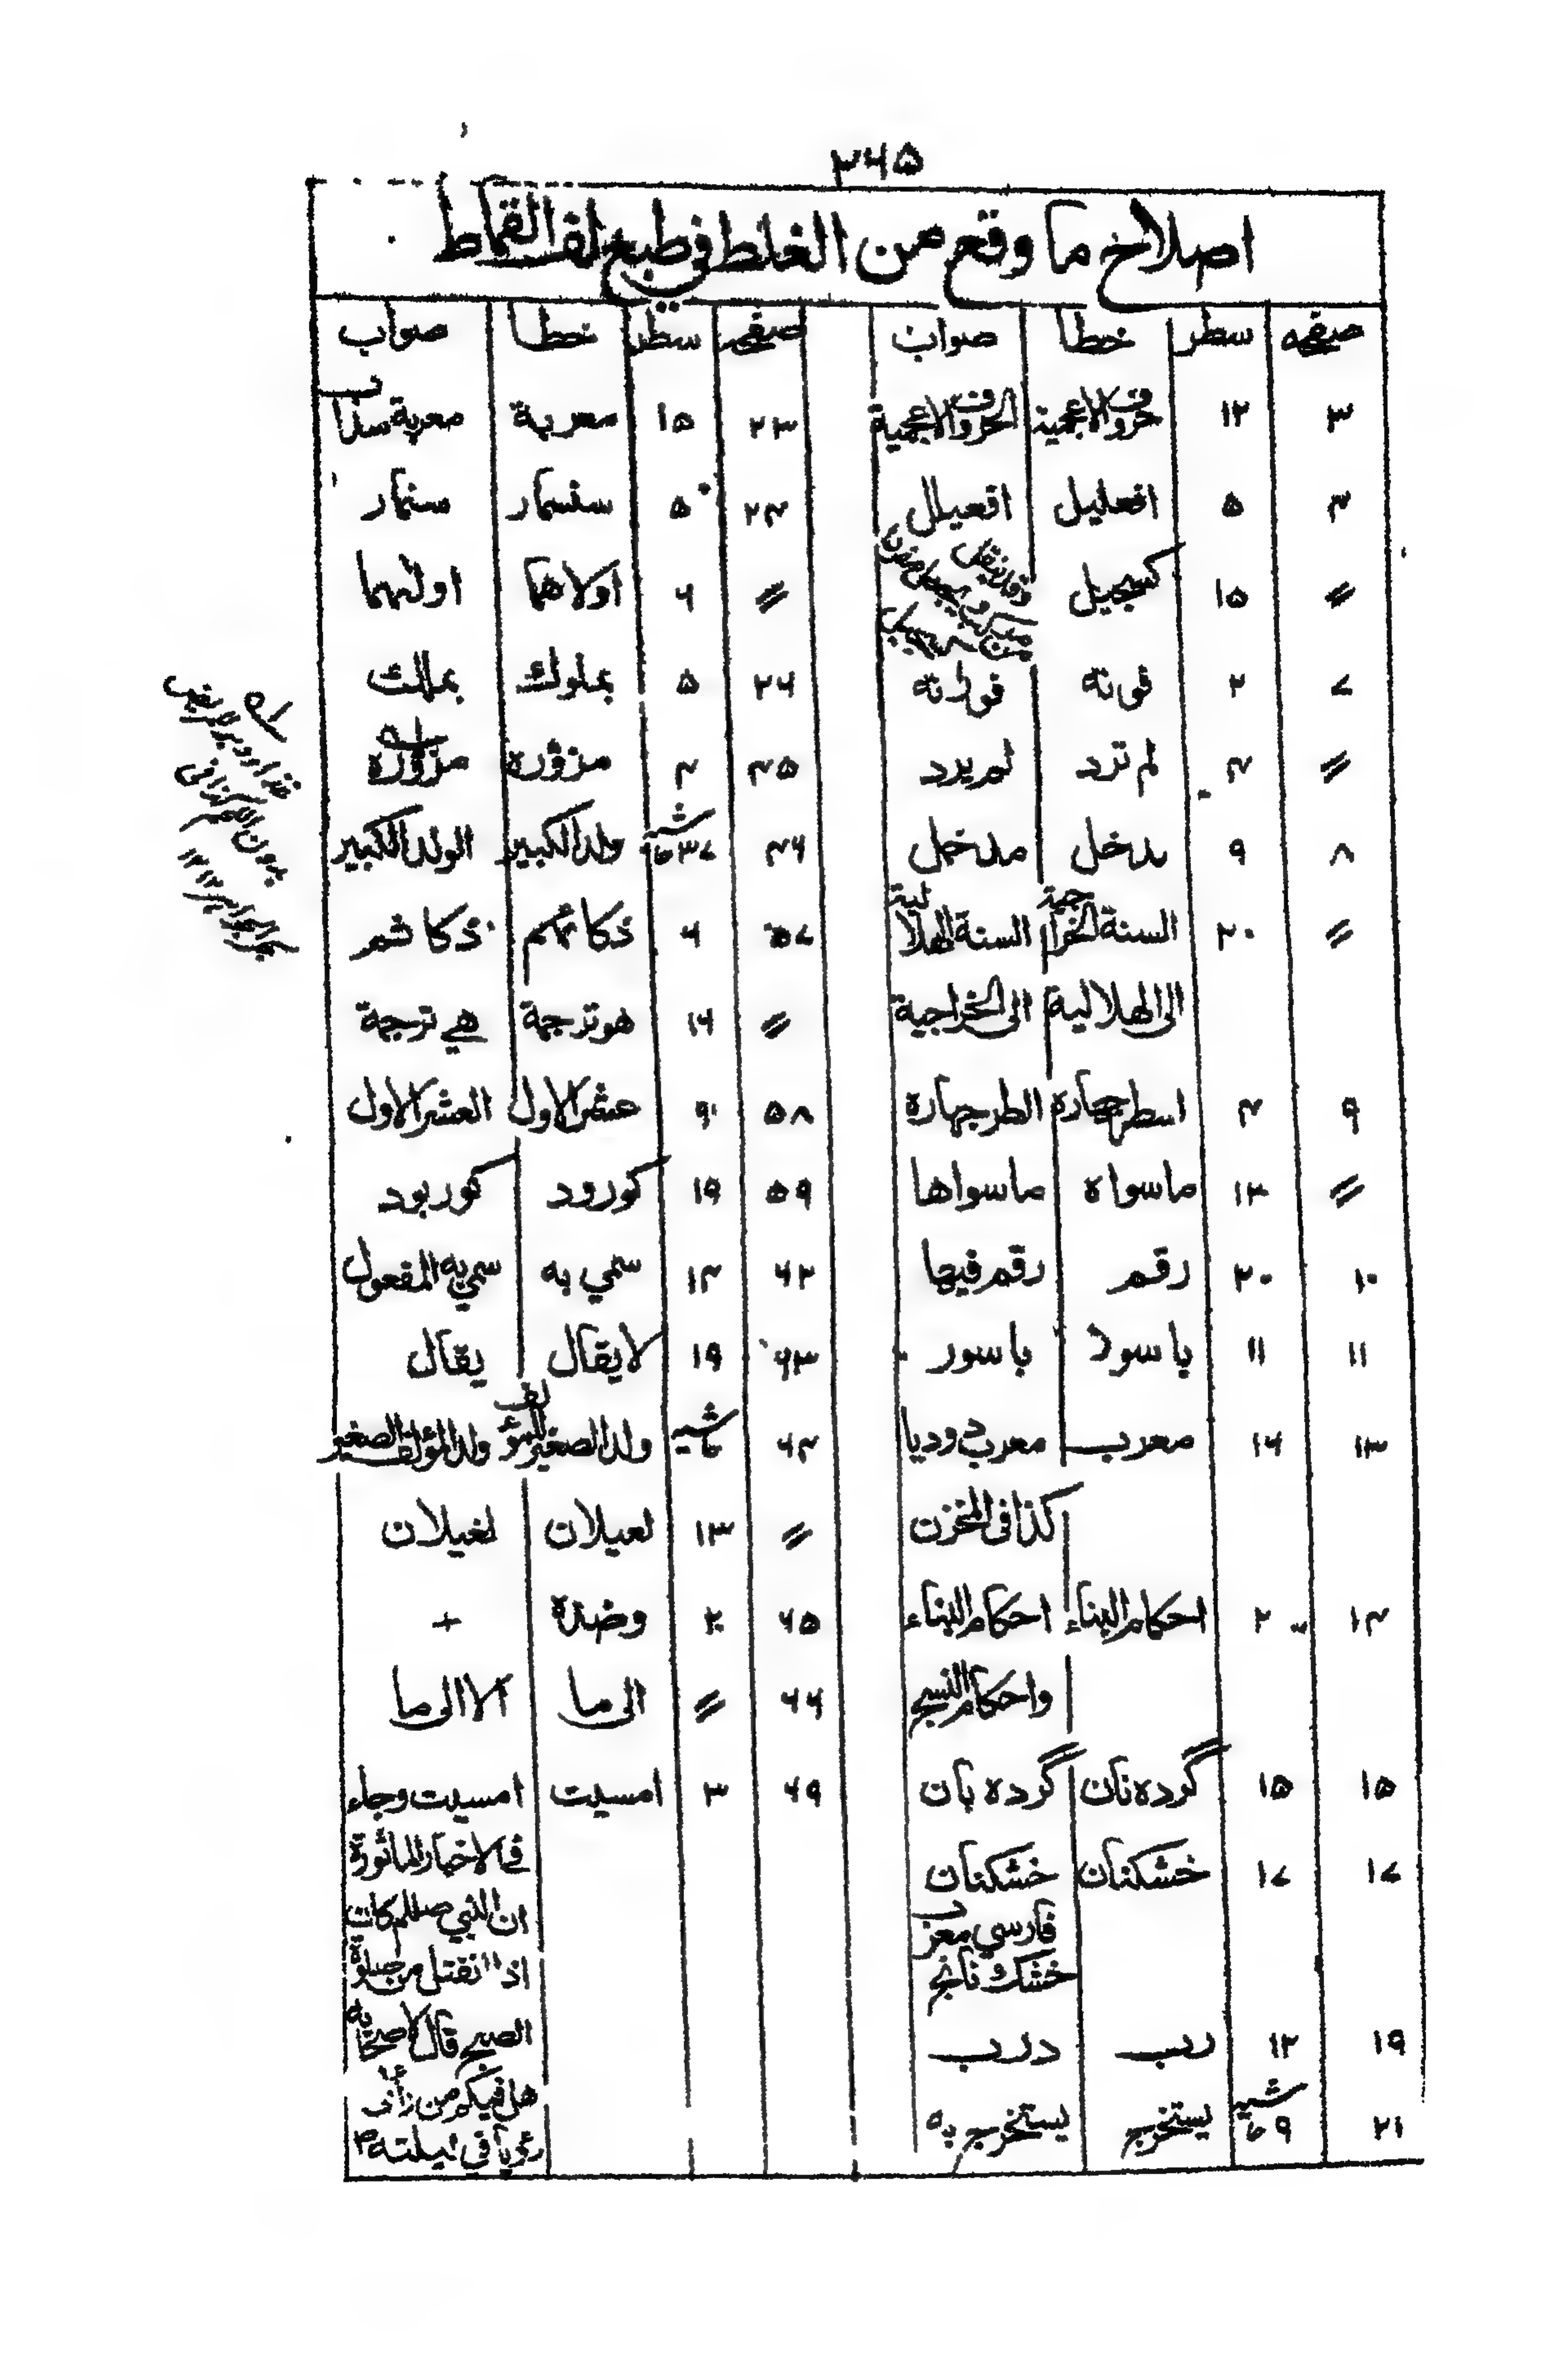 ٢٦٥
اصلاح ما وقع من الغلط في طبع لف القماط
صفحه سطر خطا صواب
٣ ١٢ حروف الاعجمية الحروف الاعجمية
٤ ٥ افعليل افعيلل
〃 ١٥ كسجيل
٧ ٢ فونه
〃 ٤ لم ترد لم يرد
٨ ٩ يدخل مدخل
〃 ٢٠ السنة الخراجية السنة الهلالية
الى الهلالية الى الخراجية
٩ ٤ اسطرجهارة الطرجهارة
〃 ١٣ ماسواه ماسواها
١٠ ٢٠ رقم رقم فيها
١١ ١١ باسود باسور
١٣ ١٦ معرب معرب دوديا
كذا في المخزن
١٤ ٢٠ احكام البناء احكام البناء
واحكام النسج
١٥ ١٥ گرده نان گرده بان
١٧ ١٧ خشكنان خشكنان
فارسي معرب
خشك نانج
١٩ ١٢ ربب درب
٢١ ٩ حاشيه يستخرج يستخرج به
صفحه سطر خطا صواب
٢٣ ١٥ معربة معربة سذاب
٢٤ ٥ سنسمار سنمار
〃 ٦ اولاهما اولٰهما
٢٦ ٥ بملوك بملك
٤٥ ٤ مزوّرة مزوّرة
٤٦ ٣٧ حاشيه ولد الكبير الولد الكبير
٥٧ ٦ ذكائهم ذكاثم
〃 ١٦ هو ترجمة هي ترجمة
٥٨ ٩ عشر الاول العشر الاول
٥٩ ١٩ كورود كوربود
٦٢ ١٤ سمي به سمي به المفعول
٦٣ ١٩ لا يقال يقال
٦٤ حاشيه ولد الصغير للمؤلف ولد المؤلف الصغير
〃 ١٣ لعيلان لغيلان
٦٥ ٢ وضده +
٦٦ 〃 الى ما الا الى ما
٦٩ ٣ امسيت امسيت وجاء
في الاخبار الماثورة
ان النبي صللم كان
اذا انفتل من صلوة
الصبح قال لاصحابه
هل فيكم من رأى
رؤيا في ليلته